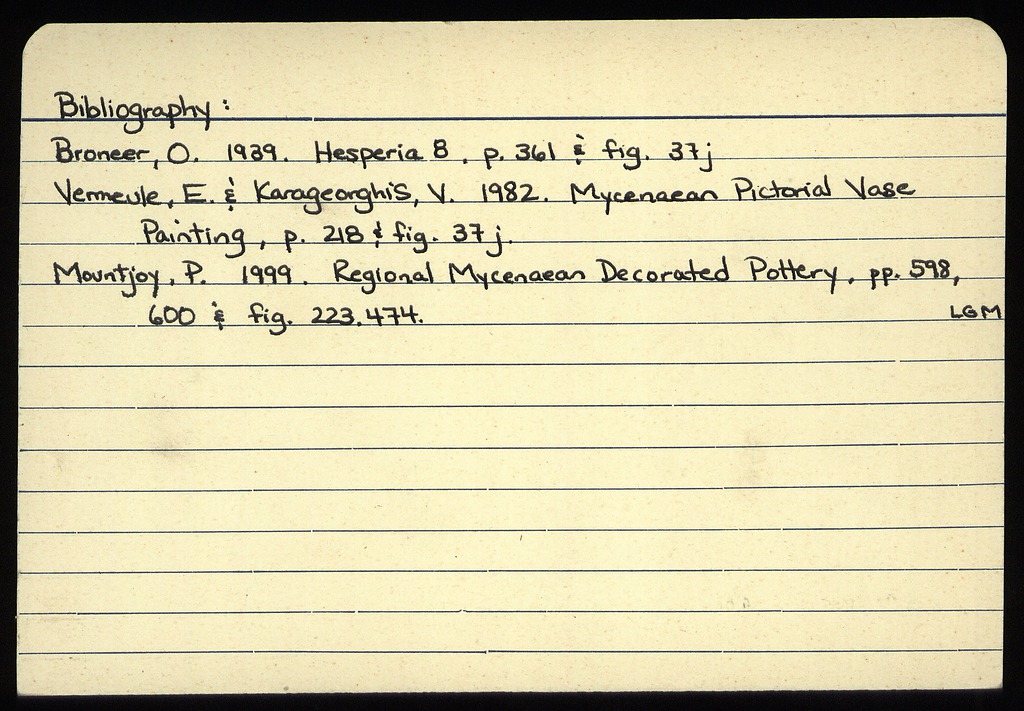 Bibliography:
Broneer, O. 1939. Hesperia 8, p. 361 & fig. 37j
Vermeule, E. & Karageorghis, V. 1982. Mycenaean Pictorial Vase
Painting, p. 218 & fig. 37j.
Mountjoy, P. 1999. Regional Mycenaean Decorated Pottery, pp. 598,
600 & fig. 223.474.
LGM